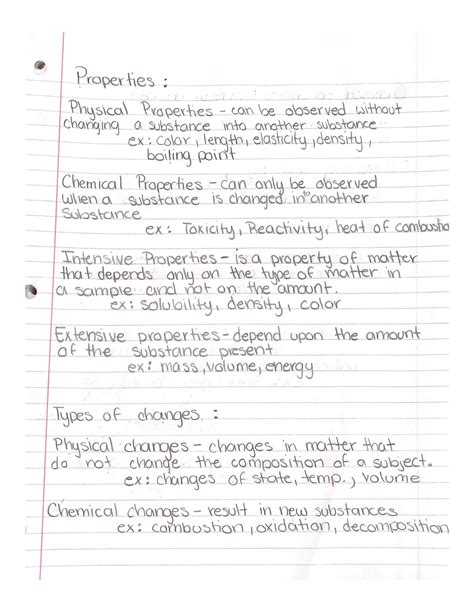 Properties :
Physical Properties - can be observed without
changing a substance into another substance
ex: color, length, elasticity, density,
boiling point
Chemical Properties - can only be observed
when a substance is changed into another
Substance
ex: Toxicity, Reactivity, heat of combustio
Intensive Properties - is a property of matter
that depends only on the type of matter in
a sample and not on the amount.
ex: solubility, density, color
Extensive properties - depend upon the amount
of the substance present
ex: mass, volume, energy
Types of changes :
Physical changes - changes in matter that
do not change the composition of a subject.
ex: changes of state, temp., volume
Chemical changes - result in new substances
ex: combustion, oxidation, decomposition